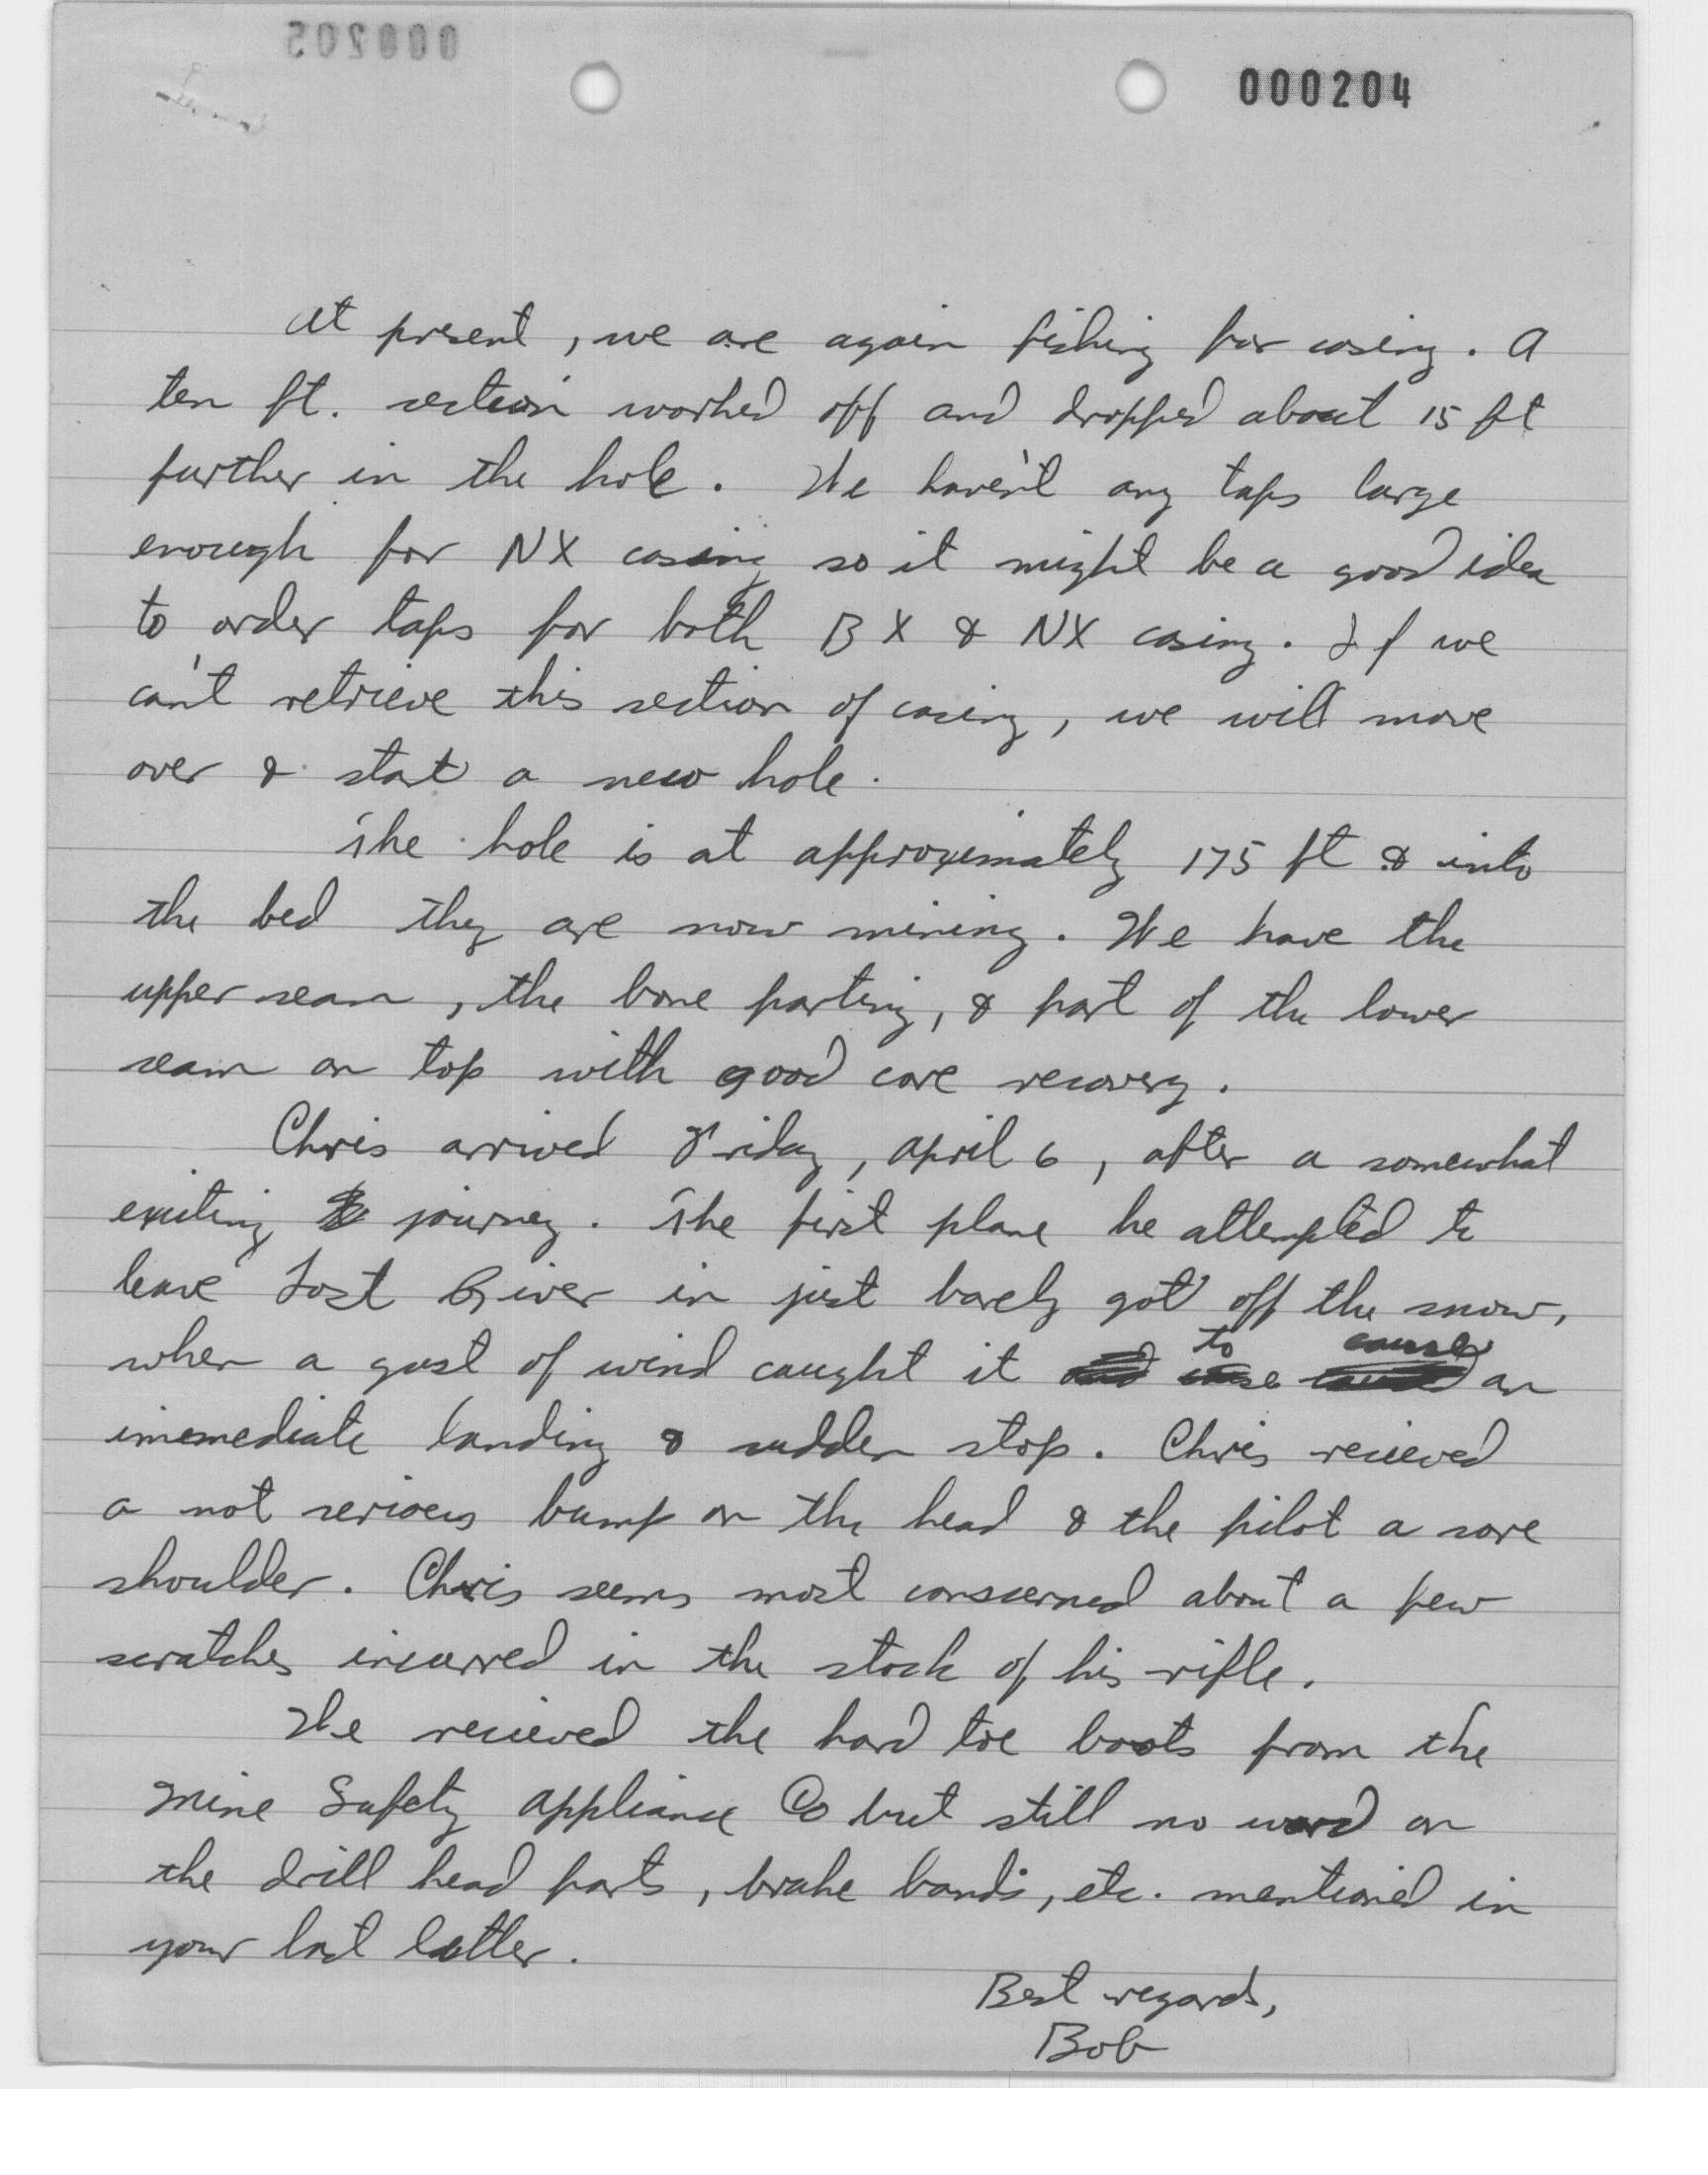 000204
At present, we are again fishing for casing. A
ten ft. section worked off and dropped about 15 ft
further in the hole. We haven't any taps large
enough for NX casing so it might be a good idea
to order taps for both BX & NX casing. If we
can't retrieve this section of casing, we will move
over & start a new hole.
The hole is at approximately 175 ft & into
the bed they are now mining. We have the
upper seam, the bone parting, & part of the lower
seam on top with good core recovery.
Chris arrived Friday, April 6, after a somewhat
exciting journey. The first plane he attempted to
leave Lost River in just barely got off the snow,
when a gust of wind caught it to cause an
immediate landing & sudden stop. Chris recieved
a not serious bump on the head & the pilot a sore
shoulder. Chris seems most conscerned about a few
scratches incurred in the stock of his rifle.
We recieved the hard toe boots from the
Mine Safety Appliance Co but still no word on
the drill head parts, brake bands, etc. mentioned in
your last letter.
Best regards,
Bob